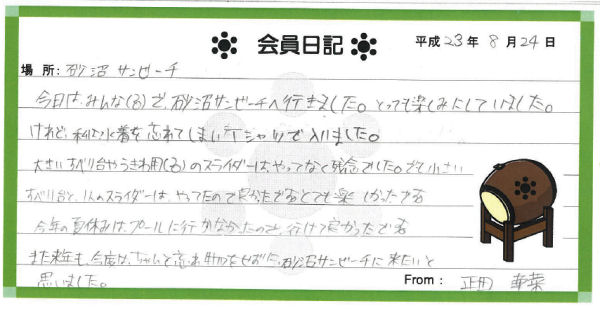 会員日記
平成23年8月24日
場所:砂沼サンビーチ
今日は、みんな(8)で、砂沼サンビーチへ行きました。とっても楽しみにしていました。
けれど、私は水着を忘れてしまいTシャツで入りました。
大きいすべり台やうきわ用(る)のスライダーはやってなく残念でした。でも小さい
すべり台と、1人のスライダーは、やってたので良かったですとても楽しかったです
今年の夏休みはプールに行かなかったので、行けて良かったです
また来年も、今度は、ちゃんと忘れ物をせずに、砂沼サンビーチに来たいと
思いました。
From: 正田